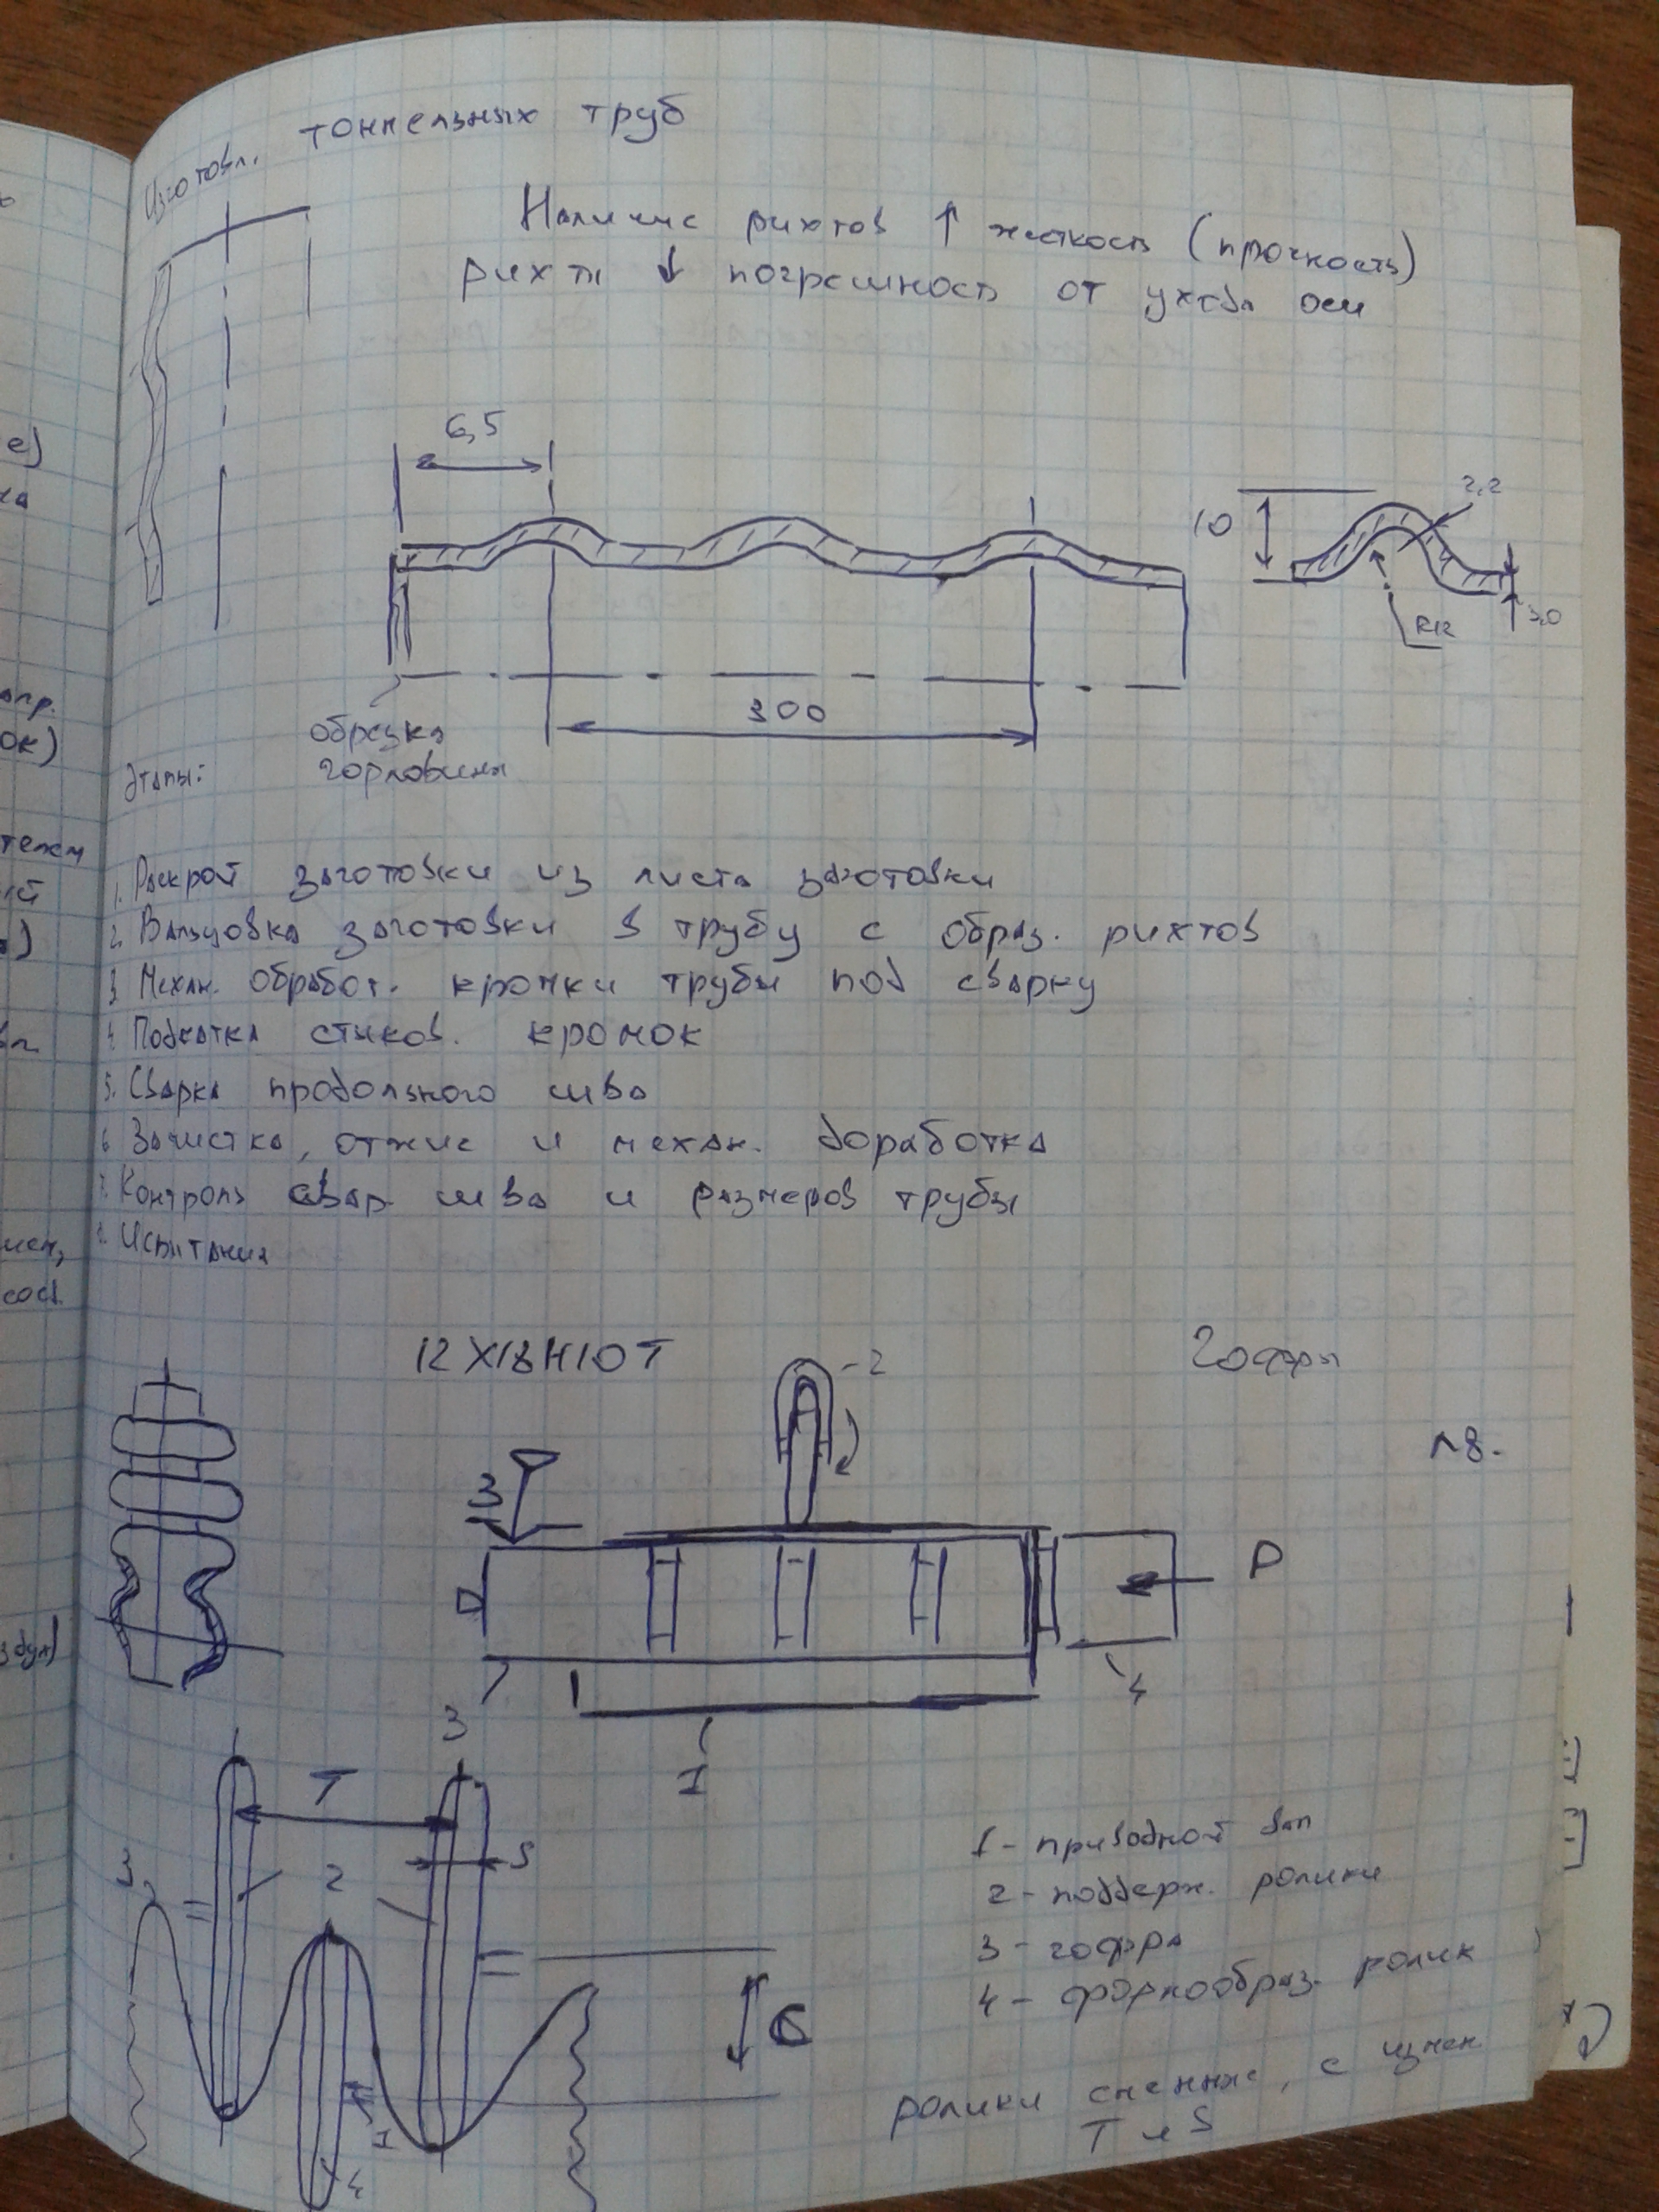 Изготовл. тоннельных труб
Наличие рихтов ↑ жесткость (прочность)
рихты ↓ погрешность от ухода оси
6,5
10
2,2
R12
3,0
300
обрезка
горловины
Этапы:
1. Раскрой заготовки из листа заготовки
2. Вальцовка заготовки в трубу с образ. рихтов
3. Механ. обработ. кромки трубы под сварку
4. Подкатка стыков. кромок
5. Сварка продольного шва
6. Зачистка, отжиг и механ. доработка
7. Контроль свар. шва и размеров трубы
8. Испытания
12Х18Н10Т
Гофры
л8.
2
3
P
4
3
1
T
S
3
2
1
4
1 - приводной вал
2 - поддерж. ролики
3 - гофра
4 - формообраз. ролик
ролики сменные, с измен.
T и S
е)
ка
апр.
ок)
тельн
ий
мен,
сост.